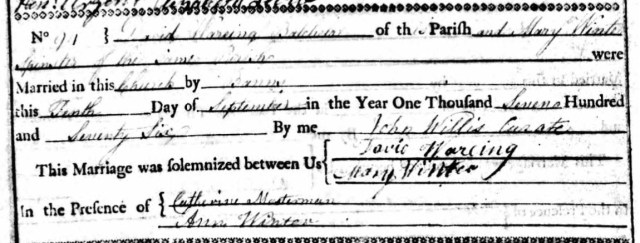 No 91 } David Wareing Batchelor of this Parish and Mary Winter
Spinster of the same Parish were
Married in this Church by Banns
this Tenth Day of September in the Year One Thousand Seven Hundred
and Seventy Six By me John Willis Curate
This Marriage was solemnized between Us { David Wareing
Mary Winter
In the Presence of { Catherine Masterman
Ann Winter